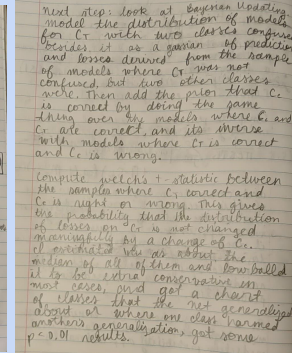 Next step: look at Bayesian updating
model the distribution of models
for CT with two classes confused
besides it as a gaussian of prediction
and losses derived from the sample
of models where CT was not
confused, but two other classes
were. Then add the prior that Cc
is correct by doing the same
thing over the models where C, and
CT are correct, and its inverse
with models where CT is correct
and Cc is wrong.
Compute welch's t-statistic between
the samples where C, correct and
Cc is right or wrong. This gives
the probability that the distribution
of losses on CT is not changed
meaningfully by a change of Cc.
I estimated was as about the
median of all of them and lowballed
it to be extra conservative in
most cases, and got a chart
of classes that the net generalized
about or where one class harmed
another's generalization, got some
p < 0.01 results.